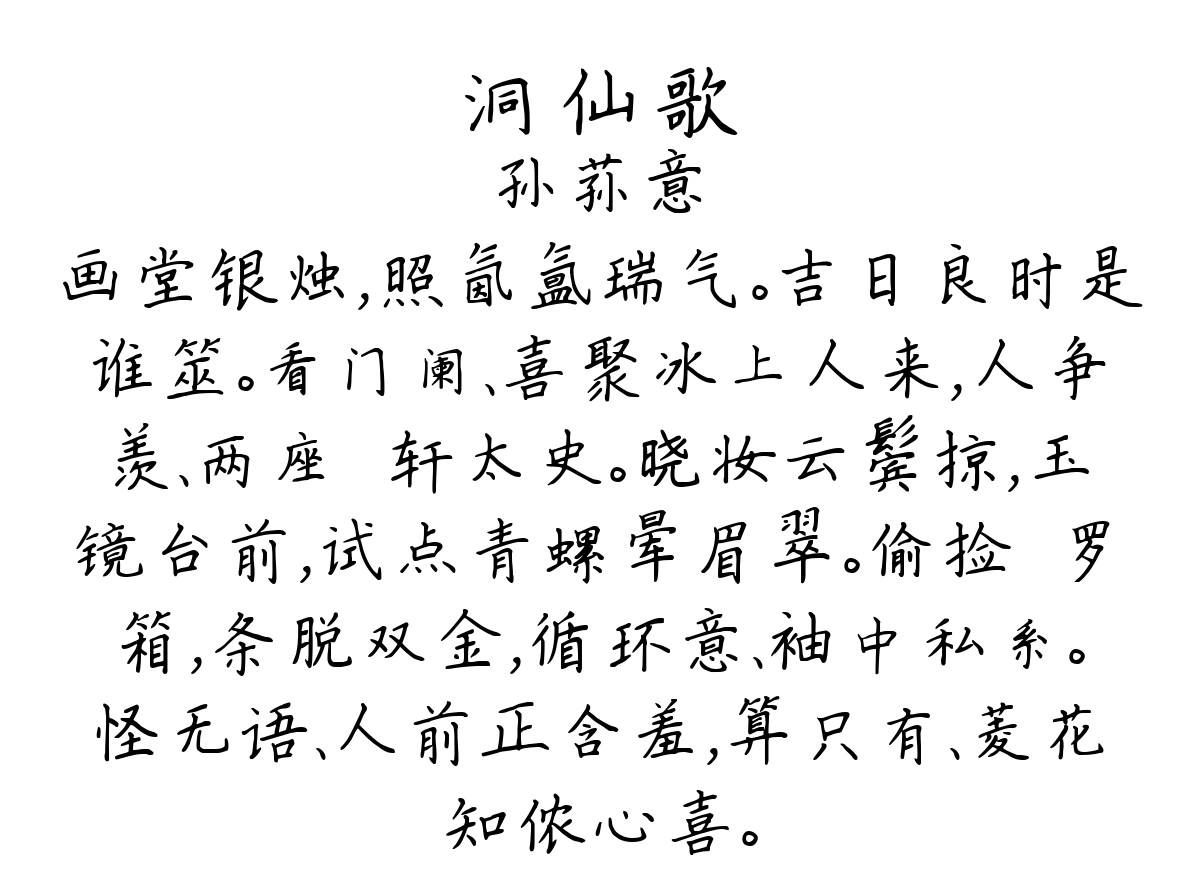 洞仙歌
孙荪意
画堂银烛,照氤氲瑞气。吉日良时是
谁筮。看门阑、喜聚冰上人来,人争
羡、两座 轩太史。晓妆云鬓掠,玉
镜台前,试点青螺晕眉翠。偷捡 罗
箱,条脱双金,循环意、袖中私系。
怪无语、人前正含羞,算只有、菱花
知侬心喜。